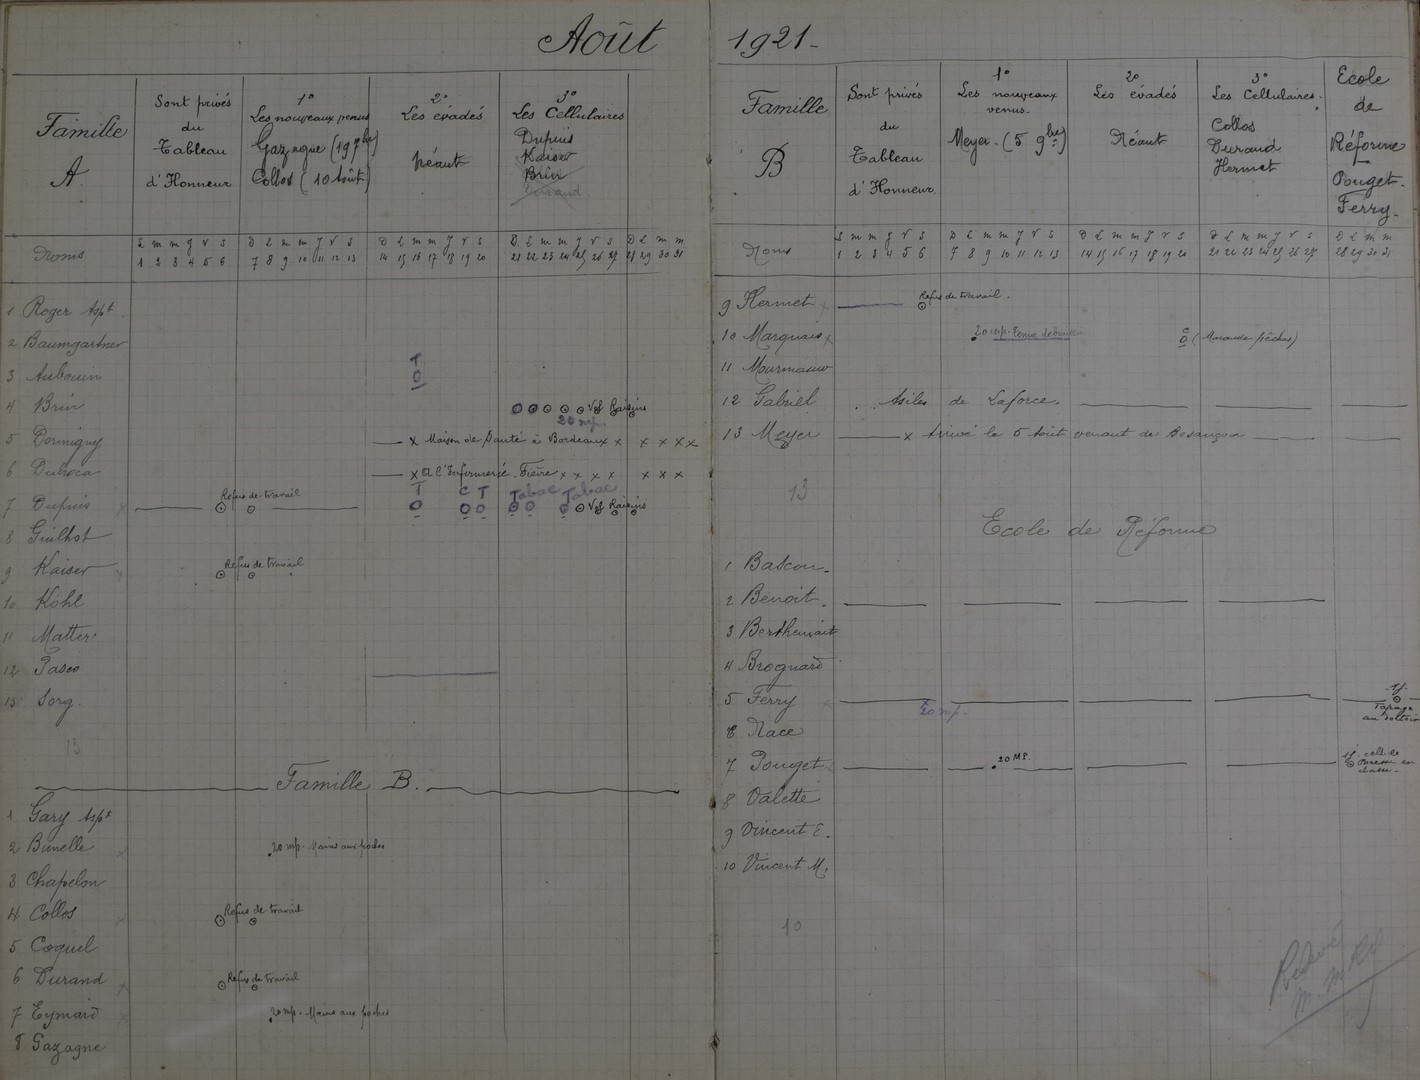 Août 1921-
Famille A.
Sont privés du Tableau d'Honneur
1º Les nouveaux venus
Gazagne (19 7bre)
Collos (10 Août)
2º Les évadés
Néaut
3º Les Cellulaires
Dupuis
Kaiser
Brin
Noms
S m m j v s
1 2 3 4 5 6
D l m m j v s
7 8 9 10 11 12 13
D l m m j v s
14 15 16 17 18 19 20
D l m m j v s
21 22 23 24 25 26 27
D l m m
28 29 30 31
1 Roger Aspt
2 Baumgartner
3 Aubouin T O
4 Brin O O O O O Vol Raisins
20 mp.
5 x Maison de Santé à Bordeaux x x x x x
6 Duroca x à l'Infirmerie Fièvre x x x x x x x
7 Dupuis x Refus de travail T C T Tabac Tabac Vol Raisins
8 Guilhot
9 Kaiser x Refus de travail
10 Kohl
11 Matter
12 Pasco
13 Sorg.
13
Famille B.
1 Gary Aspt
2 Bunelle x 20 mp. Mains aux poches
3 Chapelon
4 Collos x Refus de travail
5 Coquel
6 Durand x Refus de travail
7 Eymard x 20 mp. Mains aux poches
8 Gazagne
Famille B
Sont privés du Tableau d'Honneur.
1º Les nouveaux venus.
Meyer. (5 9bre)
2º Les évadés
Néaut
3º Les Cellulaires.
Collos
Durand
Hermet
Ecole de Réforme
Pouget.
Ferry.
Noms
S m m j v s
1 2 3 4 5 6
D l m m j v s
7 8 9 10 11 12 13
D l m m j v s
14 15 16 17 18 19 20
D l m m j v s
21 22 23 24 25 26 27
D l m m
28 29 30 31
9 Hermet x Refus de travail.
10 Marquais x 20 mp. C O (Maraude pêches)
11 Mourmaux
12 Gabriel Asiles de Laforce.
13 Meyer x Arrivé le 5 Août venant de Besançon
13
Ecole de Réforme
1 Bascou.
2 Benoit.
3
4 Brognard
5 Ferry x 20 mp. Tapage au dortoir
6 Nace
7 Pouget 20 MP. Paresse en classe.
8 Valette
9 Vincent E.
10 Vincent M.
10